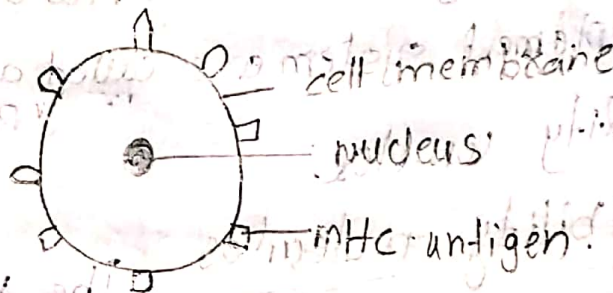 cell membrane
nucleus
mHc antigen.